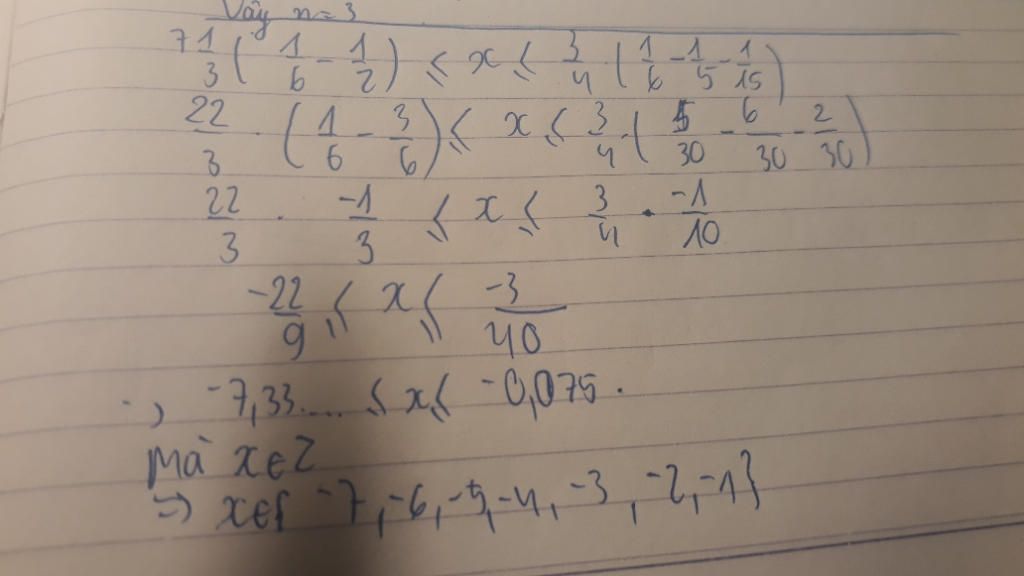 Vậy n = 3
7 1/3 ( 1/6 - 1/2 ) ≤ x ≤ 3/4 . ( 1/6 - 1/5 - 1/15 )
22/3 . ( 1/6 - 3/6 ) ≤ x ≤ 3/4 . ( 5/30 - 6/30 - 2/30 )
22/3 . -1/3 ≤ x ≤ 3/4 . -1/10
-22/9 ≤ x ≤ -3/40
-7,33.... ≤ x ≤ -0,075.
Mà x ∈ Z
=> x ∈ { -7, -6, -5, -4, -3, -2, -1 }